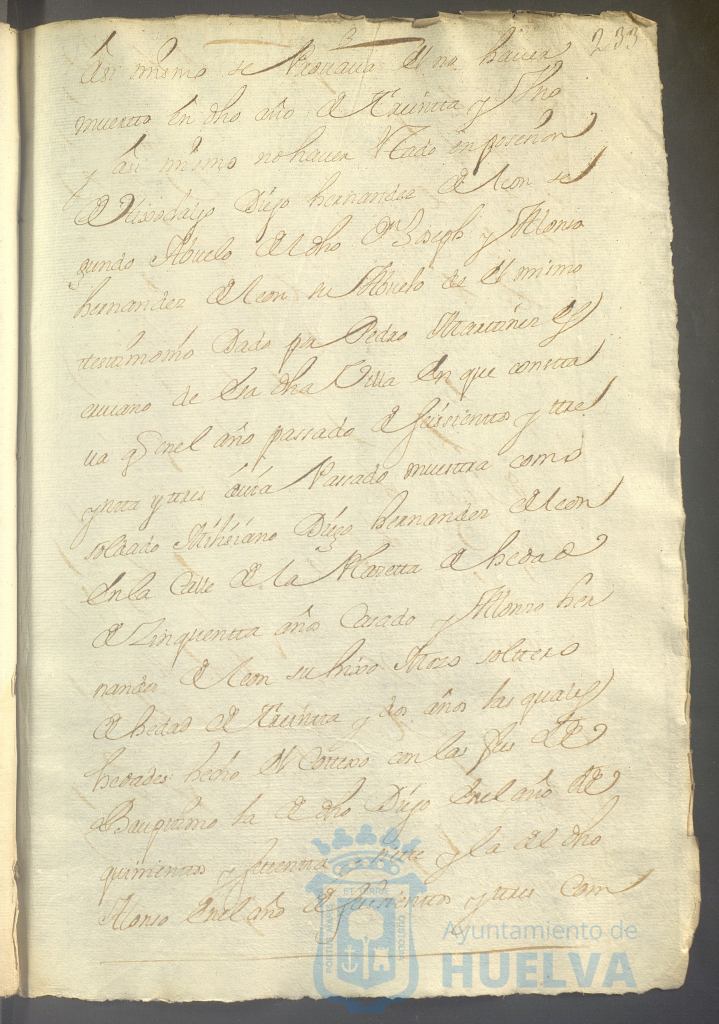 233
Asi mismo se Prouaua el no hauer
muerto en dho año de treintta y tres
y asi mismo no hauer estado en posesion
de Diego hernandez de leon se
gundo Abuelo del dho Dn Joseph y Alonso
hernandez de leon su Abuelo es el mismo
testimonio dado por Pedro Martinez es
criuano de esta dha Villa en que constta
ua q en el año passado de seissientos y tre
yntta y ttres auia Passado muestra como
soldado Miliciano Diego hernandez de leon
en la Calle de la Plazetta de hedad
de Zinquentta años Casado y Alonso her
nandez de leon su hixo Mozo soltero
de hedad de treintta y dos años las quales
hedades hecho el Cottexo con las fees de
Bauptismo la de dho Diego en el año de
quinientos y y la del dho
Alonso en el año de seissientos y ttres Com
Ayuntamiento de
HUELVA